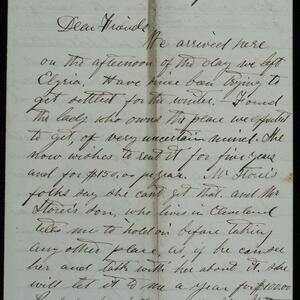 Dear Friends
We arrived here
on the afternoon of the day we left
Elyria. Have since been trying to
get settled for the winter. Found
the lady who owns the place we expected
to get of very uncertain mind. She
now wishes to rent it for five years
and for $150.00 per year. Mr Store's
folks say she cant get that. and Mr
Store's son, who lives in Cleveland
tells me to hold on before taking
any other place, as, if he can see
her and talk with her about it, she
will let it to me a year for $100.00